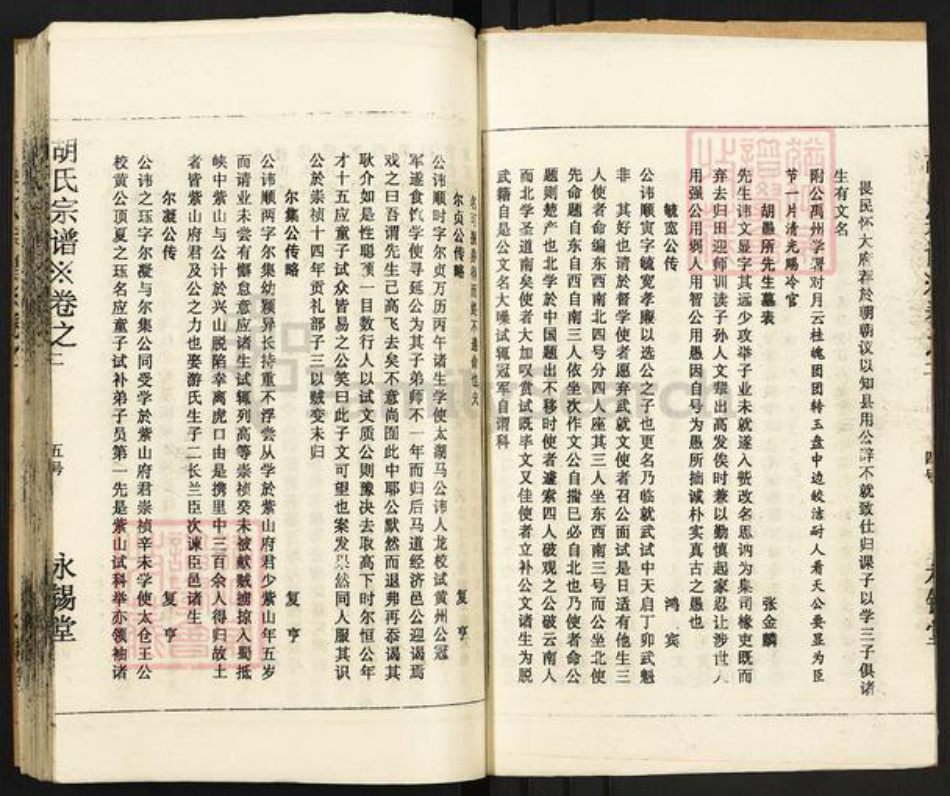 畏民怀大府荐於朝朝议以知县用公辞不就致仕归课子以学三子俱诸
生有文名
附公禹州学署对月云桂魄团团转玉盘中边皎洁耐人看天公要显为臣
节一片清光赐冷官
胡愚所先生墓表 张金麟
先生讳文显字其远少攻举子业未就遂入赀改名思讷为臬司椽吏既而
弃去归田迎师训读子孙人文辈出高发俟时兼以勤慎起家忍让涉世人
用强公用弱人用智公用愚因自号为愚所拙诚朴实真古之愚也
毓宽公传 鸿宾
公讳顺寅字毓宽孝廉以选公之子也更名乃临就武试中天启丁卯武魁
非 其好也请於督学使者愿弃武就文使者召公面试是日适有他生三
人使者命编东西南北四号分四人座其三人坐东西南三号而公坐北使
先命题自东自西自南三人依坐次作文公自揣已必自北也乃使者命公
题则楚产也北学於中国题出不移时使者遽索四人破观之公破云南人
而北学圣道南矣使者大加叹赏试既毕文又佳使者立补公文诸生为脱
武籍自是公文名大噪试辄冠军自谓科
尔贞公传略 复亨
公讳顺时字尔贞万历丙午诸生学使太湖马公讳人龙校试黄州公冠
军遂食饩学使寻延公为其子弟师不一年而归后马道经济邑公迎谒焉
戏之曰吾谓先生己高飞去矣不意尚面此中耶公默然而退弗再忝谒其
耿介如是性聪颖一目数行人以试文质公则豫决去取高下时尔恒公年
才十五应童子试众皆易之公笑曰此子文可望也案发果然同人服其识
公於崇祯十四年贡礼部子三以贼变未归
尔集公传略 复亨
公讳顺两字尔集幼颖异长持重不浮尝从学於紫山府君少紫山年五岁
而请业未尝有懈怠意应诸生试辄列高等崇祯癸未被献贼掳掠入蜀抵
峡中紫山与公计於兴山脱陷幸离虎口由是携里中三百余人得归故土
者皆紫山府君及公之力也娶游氏生子二长兰臣次谏臣邑诸生
尔凝公传 复亨
公讳之珏字尔凝与尔集公同受学於紫山府君崇祯辛未学使太仓王公
校黄公顶夏之珏名应童子试补弟子员第一先是紫山试科举亦领袖诸
胡氏宗谱※卷之二 五号 永锡堂